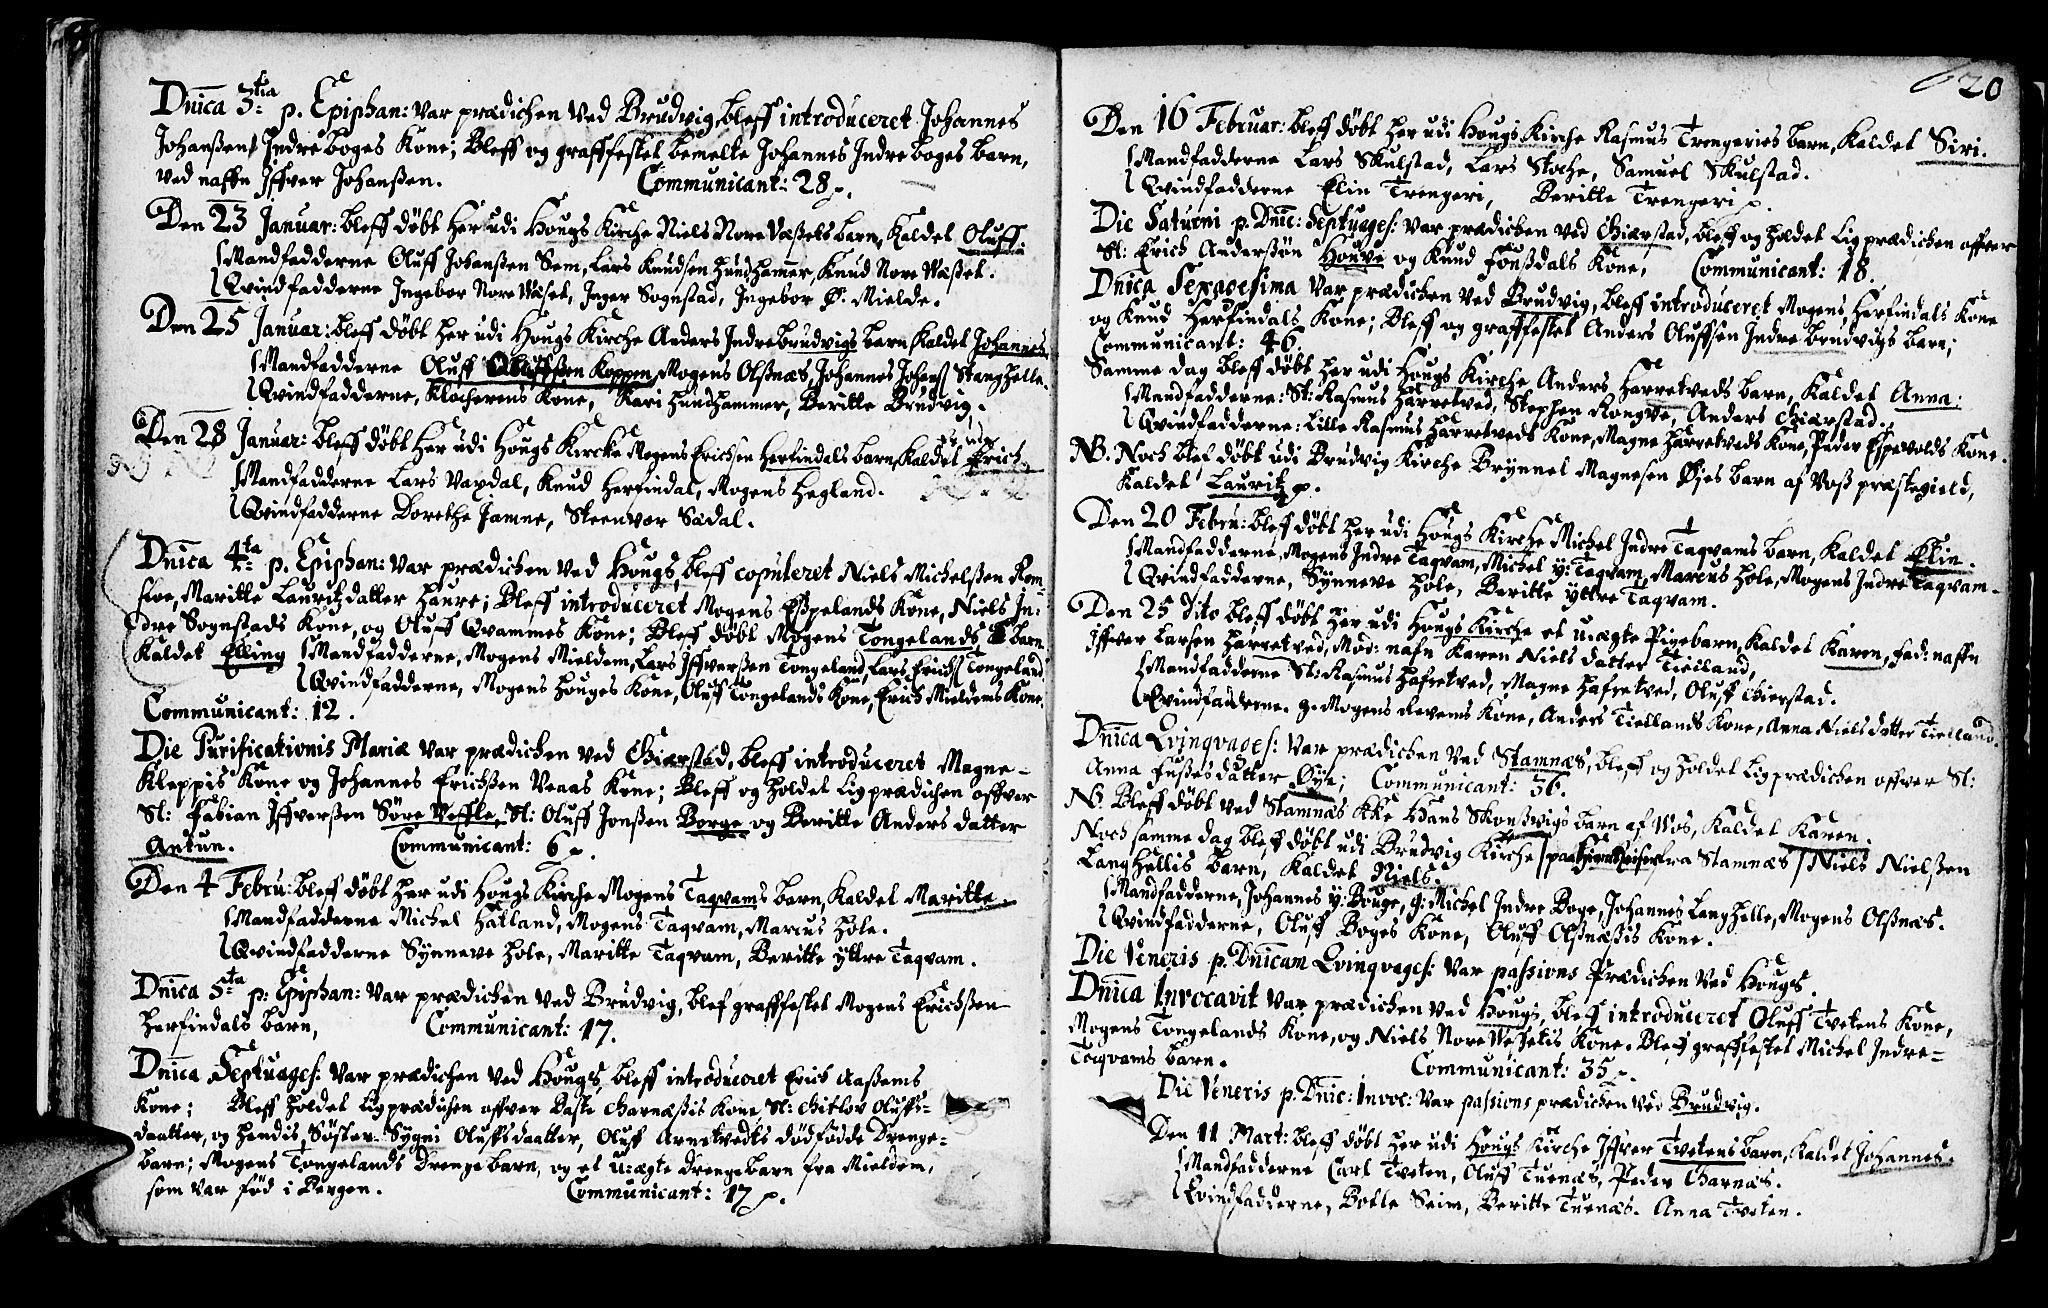 Dnica 3tia p. Epiphan: var prædichen ved Brudvig, bleff introduceret Johannes
Johanßen Indre boges Kone; Bleff og graffestet bemelte Johannes Indre boges barn,
ved naffn Iffver Johanßen. Communicant: 28 p.
Den 23 Januar: bleff døbt her udi Hougs Kirche Niels Nore Væßets barn, Kaldet Oluff.
Mandfadderne Oluff Johanßen Sem, Lars Knudsen Hundhamer, Knud Nore Wæßet.
Qvindfadderne Ingebor Nore Wæset, Inger Sognstad, Ingebor Ø. Mielde.
Den 25 Januar: bleff døbt her udi Hougs Kirche Anders Indrebrudvigs barn Kaldet Johannes
Mandfadderne Oluff Koppen, Mogens Olßnæs, Johannes Johanß Stanghelle.
Qvindfadderne, Klocherens Kone, Kari Hundhammer, Beritte Brudvig.
Den 28 Januar: bleff døbt her udi Hougs Kircke Mogens Erichsen Herfindals barn, Kaldet Erich.
Mandfadderne Lars Vaxdal, Knud Herfindal, Mogens Hegland.
Qvindfadderne Dorethe Jamne, Steenvor Sædal.
Dnica 4ta p. Epiphan: var prædichen ved Hougs, bleff copuleret Niels Michelßen Rom-
sloe, Maritte Lauritzdatter Haure; Bleff introduceret Mogens Eßpelands Kone, Niels In-
dre Sognstads Kone, og Oluff Qvammes Kone; Bleff døbt Mogens Tongelands barn
Kaldet Elling Mandfadderne, Mogens Mieldem, Lars Iffverßen Tongeland, Lars Erichß Tongeland
Qvindfadderne, Mogens Houges Kone, Oluff Tongelands Kone, Erich Mieldems Kone.
Communicant: 12.
Die Purificationis Mariæ var prædichen ved Giærstad, bleff introduceret Magne
Kleppis Kone og Johannes Erichßen Veaas Kone; Bleff og Holdet Ligprædichen offver
Sl: Fabian Iffverßen Søre Veffle, Sl: Oluff Jonßen Borge og Beritte Anders datter
Antun. Communicant: 6 p.
Den 4 Febru: bleff døbt her udi Hougs Kirche Mogens Taqvams barn, Kaldet Maritte.
Mandfadderne Michel Hatland, Mogens Taqvam, Marcus Hole.
Qvindfadderne Synneve Hole, Maritte Taqvam, Beritte yttre Taqvam.
Dnica 5ta p: Epiphan: var prædichen ved Brudvig, blef graffestet Mogens Erichßen
Herfindals barn, Communicant: 17.
Dnica Septuages: var prædichen ved Hougs, bleff introduceret Erich Aaßems
Kone; Bleff Holdet Ligprædichen offver Baste Garnæßis Kone Sl: Gitlov Oluffs-
daatter, og hendis Søster Sygni Oluffsdaatter, Oluff Arnetvedts dødfødde Drenge-
barn; Mogens Tongelands Drengebarn, og et u-ægte drengebarn fra Mieldem,
som var fød i Bergen. Communicant: 17 p.
20
Den 16 Februar: bleff døbt her udi Hougs Kirche Rasmus Trengeries barn, Kaldet Siri.
Mandfadderne Lars Skulstad, Lars Stoche, Samuel Skulstad.
Qvindfadderne Elin Trengeri, Beritte Trengeri p.
Die Saturni p. Dnic: Septuages: var prædichen ved Giærstad, bleff og Holdet Ligprædichen offver
Sl: Erich Anderßøn Houve og Knud Foußdals Kone, Communicant: 18.
Dnica Sexagesima var prædichen ved Brudvig, bleff introduceret Mogens Herfindals Kone
og Knud Herfindals Kone; Bleff og graffestet Anders Oluffsen Indre brudvigs barn;
Communicant: 46.
Samme dag bleff døbt her udi Hougs Kirche Anders Harretveds barn, Kaldet Anna:
Mandfadderne: St: Rasmus Harretved, Stephen Rongve, Anders Giærstad.
Qvindfadderne: Lille Rasmus Harretveds Kone, Magne Harretveds Kone, Peder Espevolds Kone.
NB. Noch blef døbt udi Brudvig Kirche Brynnel Magnesen Øjes barn af Voß præstegield,
Kaldet Lauritz p.
Den 20 Febru: bleff døbt her udi Hougs Kirche Michel Indre Taqvams barn, Kaldet Elin.
Mandfadderne, Mogens Indre Taqvam, Michel y: Taqvam, Marcus Hole, Mogens Indre Taqvam.
Qvindfadderne, Synneve Hole, Beritte yttre Taqvam.
Den 25 dito bleff døbt her udi Hougs Kirche et u-ægte Pigebarn, Kaldet Karen, fad: naffn
Iffver Larsen Harretved, Mod: nafn Karen Niels datter Tielland,
Mandfadderne St: Rasmus Hafretved, Magne Hafretved, Oluff Gierstad.
Qvindfadderne. g. Mogens Revems Kone, Anders Tiellands Kone, Anna Nielsdatter Tielland.
Dnica Qvinqvages: var prædichen ved Stamnæs, bleff og Holdet Ligprædichen offver Sl:
Anna Fußesdatter Øye; Communicant: 36.
NB. Bleff døbt ved Stamnæs Kke Hans Skonßvigs barn af Vos, Kaldet Karen.
Noch samme dag bleff døbt udi Brudvig Kirche / paa fra Stamnæs / Niels Nielßen
Langhellis barn, Kaldet Niels.
Mandfadderne, Johannes y: Bouge, g: Michel Indre Boge, Johannes Langhelle, Mogens Olßnæs.
Qvindfadderne, Oluff Boges Kone, Oluff Olßnæßis Kone.
Die Veneris p. Dnicam Qvinqvages: var passions Prædichen ved Hougs.
Dnica Invocavit var prædichen ved Hougs, bleff introduceret Oluff Tvetens Kone,
Mogens Tongelands Kone, og Niels Nore Wesetis Kone. Bleff graffestet Michel Indre-
Taqvams barn. Communicant: 35 p.
Die Veneris p. Dnic: Invoc: var passions prædichen ved Brudvig.
Den 11 Mart: bleff døbt her udi Hougs Kirche Iffver Tvetens barn, Kaldet Johannes.
Mandfadderne Carl Tveten, Oluff Tuenæs, Peder Garnæs.
Qvindfadderne, Botle Seim, Beritte Tuenæs. Anna Tveten.